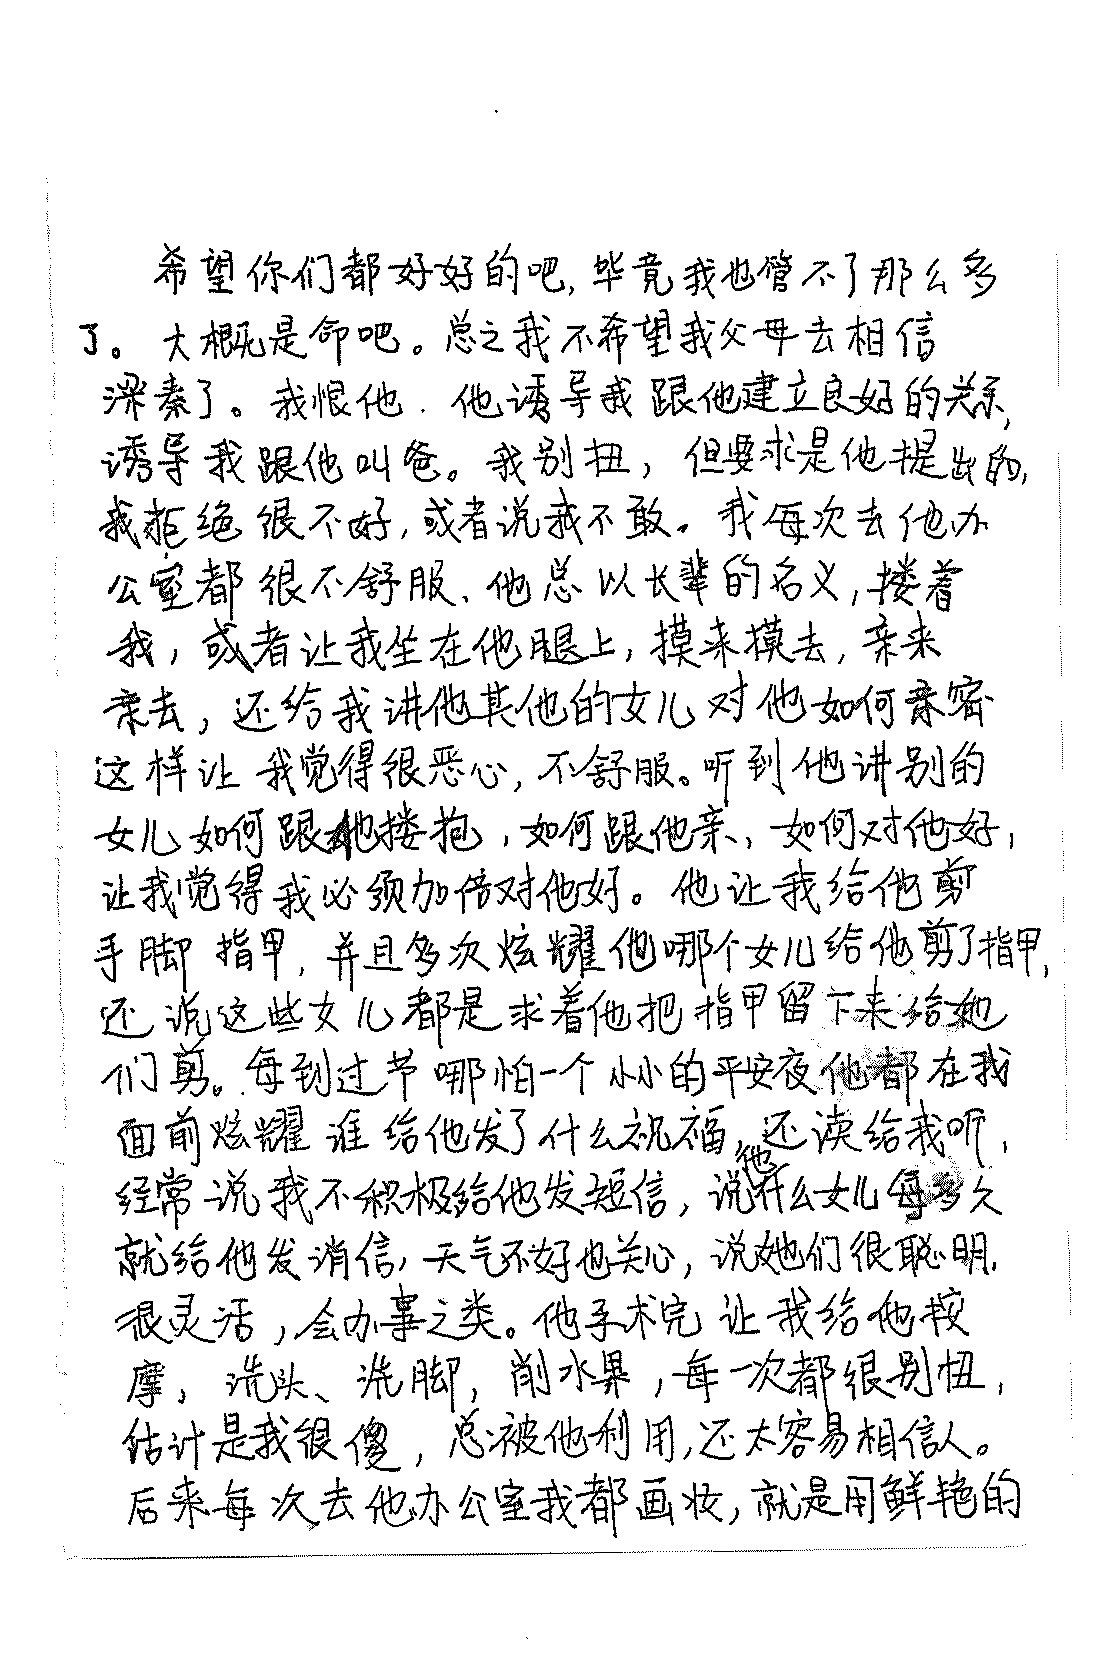 希望你们都好好的吧,毕竟我也管不了那么多
了。大概是命吧。总之我不希望我父母去相信
梁秦了。我恨他.他诱导我跟他建立良好的关系,
诱导我跟他叫爸。我别扭,但要求是他提出的,
我拒绝很不好,或者说我不敢。我每次去他办
公室都很不舒服、他总以长辈的名义,搂着
我,或者让我坐在他腿上,摸来摸去,亲来
亲去,还给我讲他其他的女儿对他如何亲密
这样让我觉得很恶心,不舒服。听到他讲别的
女儿如何跟他搂抱,如何跟他亲、如何对他好,
让我觉得我必须加倍对他好。他让我给他剪
手脚指甲,并且多次炫耀他哪个女儿给他剪了指甲,
还说这些女儿都是求着他把指甲留下来给她
们剪。每到过节哪怕一个小小的平安夜他都在我
面前炫耀谁给他发了什么祝福,还读给我听,
经常说我不积极给他发短信,说他什么女儿每多久
就给他发消信,天气不好也关心,说她们很聪明,
很灵活,会办事之类。他手术完让我给他按
摩,洗头、洗脚,削水果,每一次都很别扭,
估计是我很傻,总被他利用,还太容易相信人。
后来每次去他办公室我都画妆,就是用鲜艳的